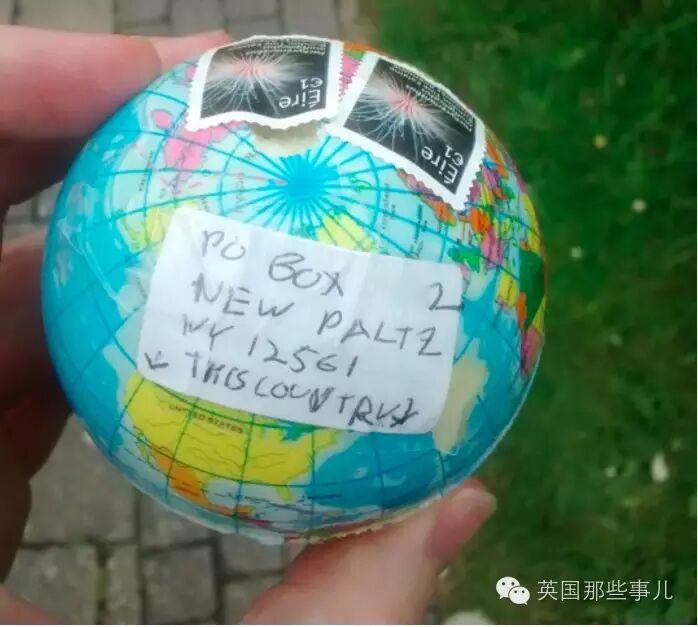 Éire
€1
Éire
€1
PO BOX 2
NEW PALTZ
NY 12561
↙ THIS COUNTRY ↓
UNITED STATES
英国那些事儿